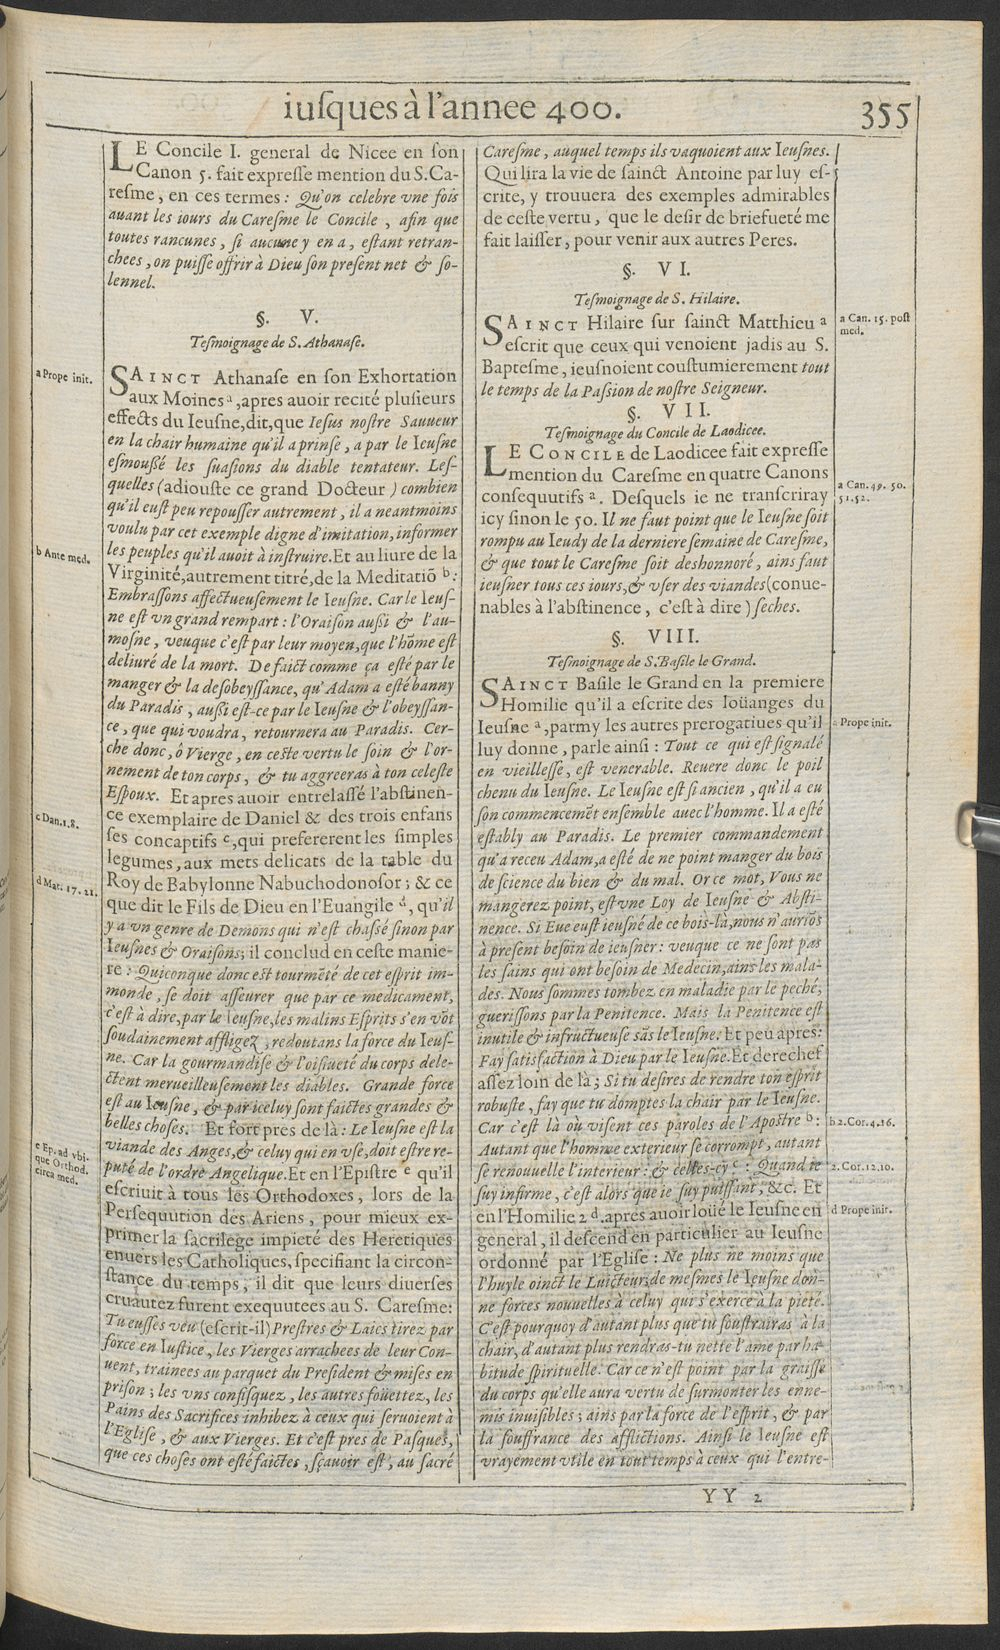 iuſques à l'annee 400.
355
LE Concile I. general de Nicee en ſon
Canon 5. fait expreſſe mention du S. Ca-
reſme, en ces termes: Qu'on celebre vne fois
auant les iours du Careſme le Concile, afin que
toutes rancunes, ſi aucune y en a, eſtant retran-
chees, on puiſſe offrir à Dieu ſon preſent net & ſo-
lennel.
§. V.
Teſmoignage de S. Athanaſe.
a Prope init.
SAINCT Athanaſe en ſon Exhortation
aux Moines ᵃ, apres auoir recité pluſieurs
effects du Ieuſne, dit, que Ieſus noſtre Sauueur
en la chair humaine qu'il a prinſe, a par le Ieuſne
eſmouſſé les ſuaſions du diable tentateur. Leſ-
quelles (adiouſte ce grand Docteur) combien
qu'il euſt peu repouſſer autrement, il a neantmoins
voulu par cet exemple digne d'imitation, informer
les peuples qu'il auoit à inſtruire. Et au liure de la
b Ante med.
Virginité, autrement titré, de la Meditatiō ᵇ:
Embraſſons affectueuſement le Ieuſne. Car le Ieuſ-
ne eſt vn grand rempart: l'Oraiſon auſſi & l'au-
moſne, veuque c'eſt par leur moyen, que l'hōme eſt
deliuré de la mort. De faict comme ça eſté par le
manger & la deſobeyſſance, qu'Adam a eſté banny
du Paradis, auſſi eſt-ce par le Ieuſne & l'obeyſſan-
ce, que qui voudra, retournera au Paradis. Cer-
che donc, ô Vierge, en ceſte vertu le ſoin & l'or-
nement de ton corps, & tu aggreeras à ton celeſte
Eſpoux. Et apres auoir entrelaſſé l'abſtinen-
ce exemplaire de Daniel & des trois enfans
c Dan. 1. 8.
ſes concaptifs ᶜ, qui prefererent les ſimples
legumes, aux mets delicats de la table du
Roy de Babylonne Nabuchodonoſor; & ce
d Mat. 17. 21.
que dit le Fils de Dieu en l'Euangile ᵈ, qu'il
y a vn genre de Demons qui n'eſt chaſſé ſinon par
Ieuſnes & Oraiſons; il conclud en ceſte manie-
re: Quiconque donc eſt tourmēté de cet eſprit im-
monde, ſe doit aſſeurer que par ce medicament,
c'eſt à dire, par le Ieuſne, les malins Eſprits s'en vōt
ſoudainement affligez, redoutans la force du Ieuſ-
ne. Car la gourmandiſe & l'oiſiueté du corps dele-
ctent merueilleuſement les diables. Grande force
eſt au Ieuſne, & par iceluy ſont faictes grandes &
belles choſes. Et fort pres de là: Le Ieuſne eſt la
viande des Anges, & celuy qui en vſe, doit eſtre re-
puté de l'ordre Angelique. Et en l'Epiſtre ᵉ qu'il
e Ep. ad vbi-
que Orthod.
circa med.
eſcriuit à tous les Orthodoxes, lors de la
Perſequution des Ariens, pour mieux ex-
primer la ſacrilege impieté des Heretiques
enuers les Catholiques, ſpecifiant la circon-
ſtance du temps, il dit que leurs diuerſes
cruautez furent exequutees au S. Careſme:
Tu euſſes veu (eſcrit-il) Preſtres & Laics tirez par
force en Iuſtice, les Vierges arrachees de leur Con-
uent, trainees au parquet du Preſident & miſes en
priſon; les vns confiſquez, les autres foüettez, les
Pains des Sacrifices inhibez à ceux qui ſeruoient à
l'Egliſe, & aux Vierges. Et c'eſt pres de Paſques,
que ces choſes ont eſté faictes, ſçauoir eſt, au ſacré
Careſme, auquel temps ils vaquoient aux Ieuſnes.
Qui lira la vie de ſainct Antoine par luy eſ-
crite, y trouuera des exemples admirables
de ceſte vertu, que le deſir de briefueté me
fait laiſſer, pour venir aux autres Peres.
§. VI.
Teſmoignage de S. Hilaire.
SAINCT Hilaire ſur ſainct Matthieu ᵃ
a Can. 15. poſt
med.
eſcrit que ceux qui venoient jadis au S.
Bapteſme, ieuſnoient couſtumierement tout
le temps de la Paſſion de noſtre Seigneur.
§. VII.
Teſmoignage du Concile de Laodicee.
LE CONCILE de Laodicee fait expreſſe
mention du Careſme en quatre Canons
a Can. 49. 50.
51. 52.
conſequutifs ᵃ. Deſquels ie ne tranſcriray
icy ſinon le 50. Il ne faut point que le Ieuſne ſoit
rompu au Ieudy de la derniere ſemaine de Careſme,
& que tout le Careſme ſoit deshonnoré, ains faut
ieuſner tous ces iours, & vſer des viandes (conue-
nables à l'abſtinence, c'eſt à dire) ſeches.
§. VIII.
Teſmoignage de S. Baſile le Grand.
SAINCT Baſile le Grand en la premiere
Homilie qu'il a eſcrite des loüanges du
Ieuſne ᵃ, parmy les autres prerogatiues qu'il
a Prope init.
luy donne, parle ainſi: Tout ce qui eſt ſignalé
en vieilleſſe, eſt venerable. Reuere donc le poil
chenu du Ieuſne. Le Ieuſne eſt ſi ancien, qu'il a eu
ſon commencemēt enſemble auec l'homme. Il a eſté
eſtably au Paradis. Le premier commandement
qu'a receu Adam, a eſté de ne point manger du bois
de ſcience du bien & du mal. Or ce mot, Vous ne
mangerez point, eſt vne Loy de Ieuſne & Abſti-
nence. Si Eue euſt ieuſné de ce bois-là, nous n'auriōs
à preſent beſoin de ieuſner: veuque ce ne ſont pas
les ſains qui ont beſoin de Medecin, ains les mala-
des. Nous ſommes tombez en maladie par le peché,
gueriſſons par la Penitence. Mais la Penitence eſt
inutile & infructueuſe sās le Ieuſne. Et peu apres:
Fay ſatisfaction à Dieu par le Ieuſne. Et derechef
aſſez loin de là; Si tu deſires de rendre ton eſprit
robuſte, fay que tu domptes la chair par le Ieuſne.
Car c'eſt là où viſent ces paroles de l'Apoſtre ᵇ:
b 2. Cor. 4. 16.
Autant que l'homme exterieur ſe corrompt, autant
ſe renouuelle l'interieur: & celles-cy ᶜ: Quand ie
2. Cor. 12. 10.
ſuy infirme, c'eſt alors que ie ſuy puiſſant, &c. Et
en l'Homilie 2 ᵈ. apres auoir loüé le Ieuſne en
d Prope init.
general, il deſcend en particulier au Ieuſne
ordonné par l'Egliſe: Ne plus ne moins que
l'huyle oinct le Luicteur, de meſmes le Ieuſne don-
ne forces nouuelles à celuy qui s'exerce à la pieté.
C'eſt pourquoy d'autant plus que tu ſouſtrairas à la
chair, d'autant plus rendras-tu nette l'ame par ha-
bitude ſpirituelle. Car ce n'eſt point par la graiſſe
du corps qu'elle aura vertu de ſurmonter les enne-
mis inuiſibles; ains par la force de l'eſprit, & par
la ſouffrance des afflictions. Ainſi le Ieuſne eſt
vrayement vtile en tout temps à ceux qui l'entre-
YY 2